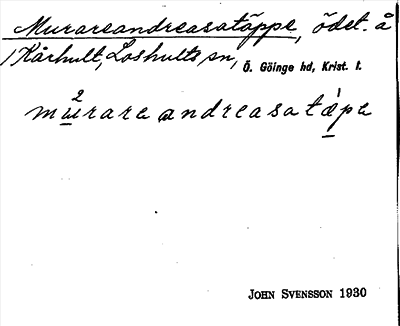 Murareandreasatäppe, ödet. å
/Kårhult, Loshults sn, Ö. Göinge hd, Krist. l.
2
murare andreasatæ̀pe
JOHN SVENSSON 1930